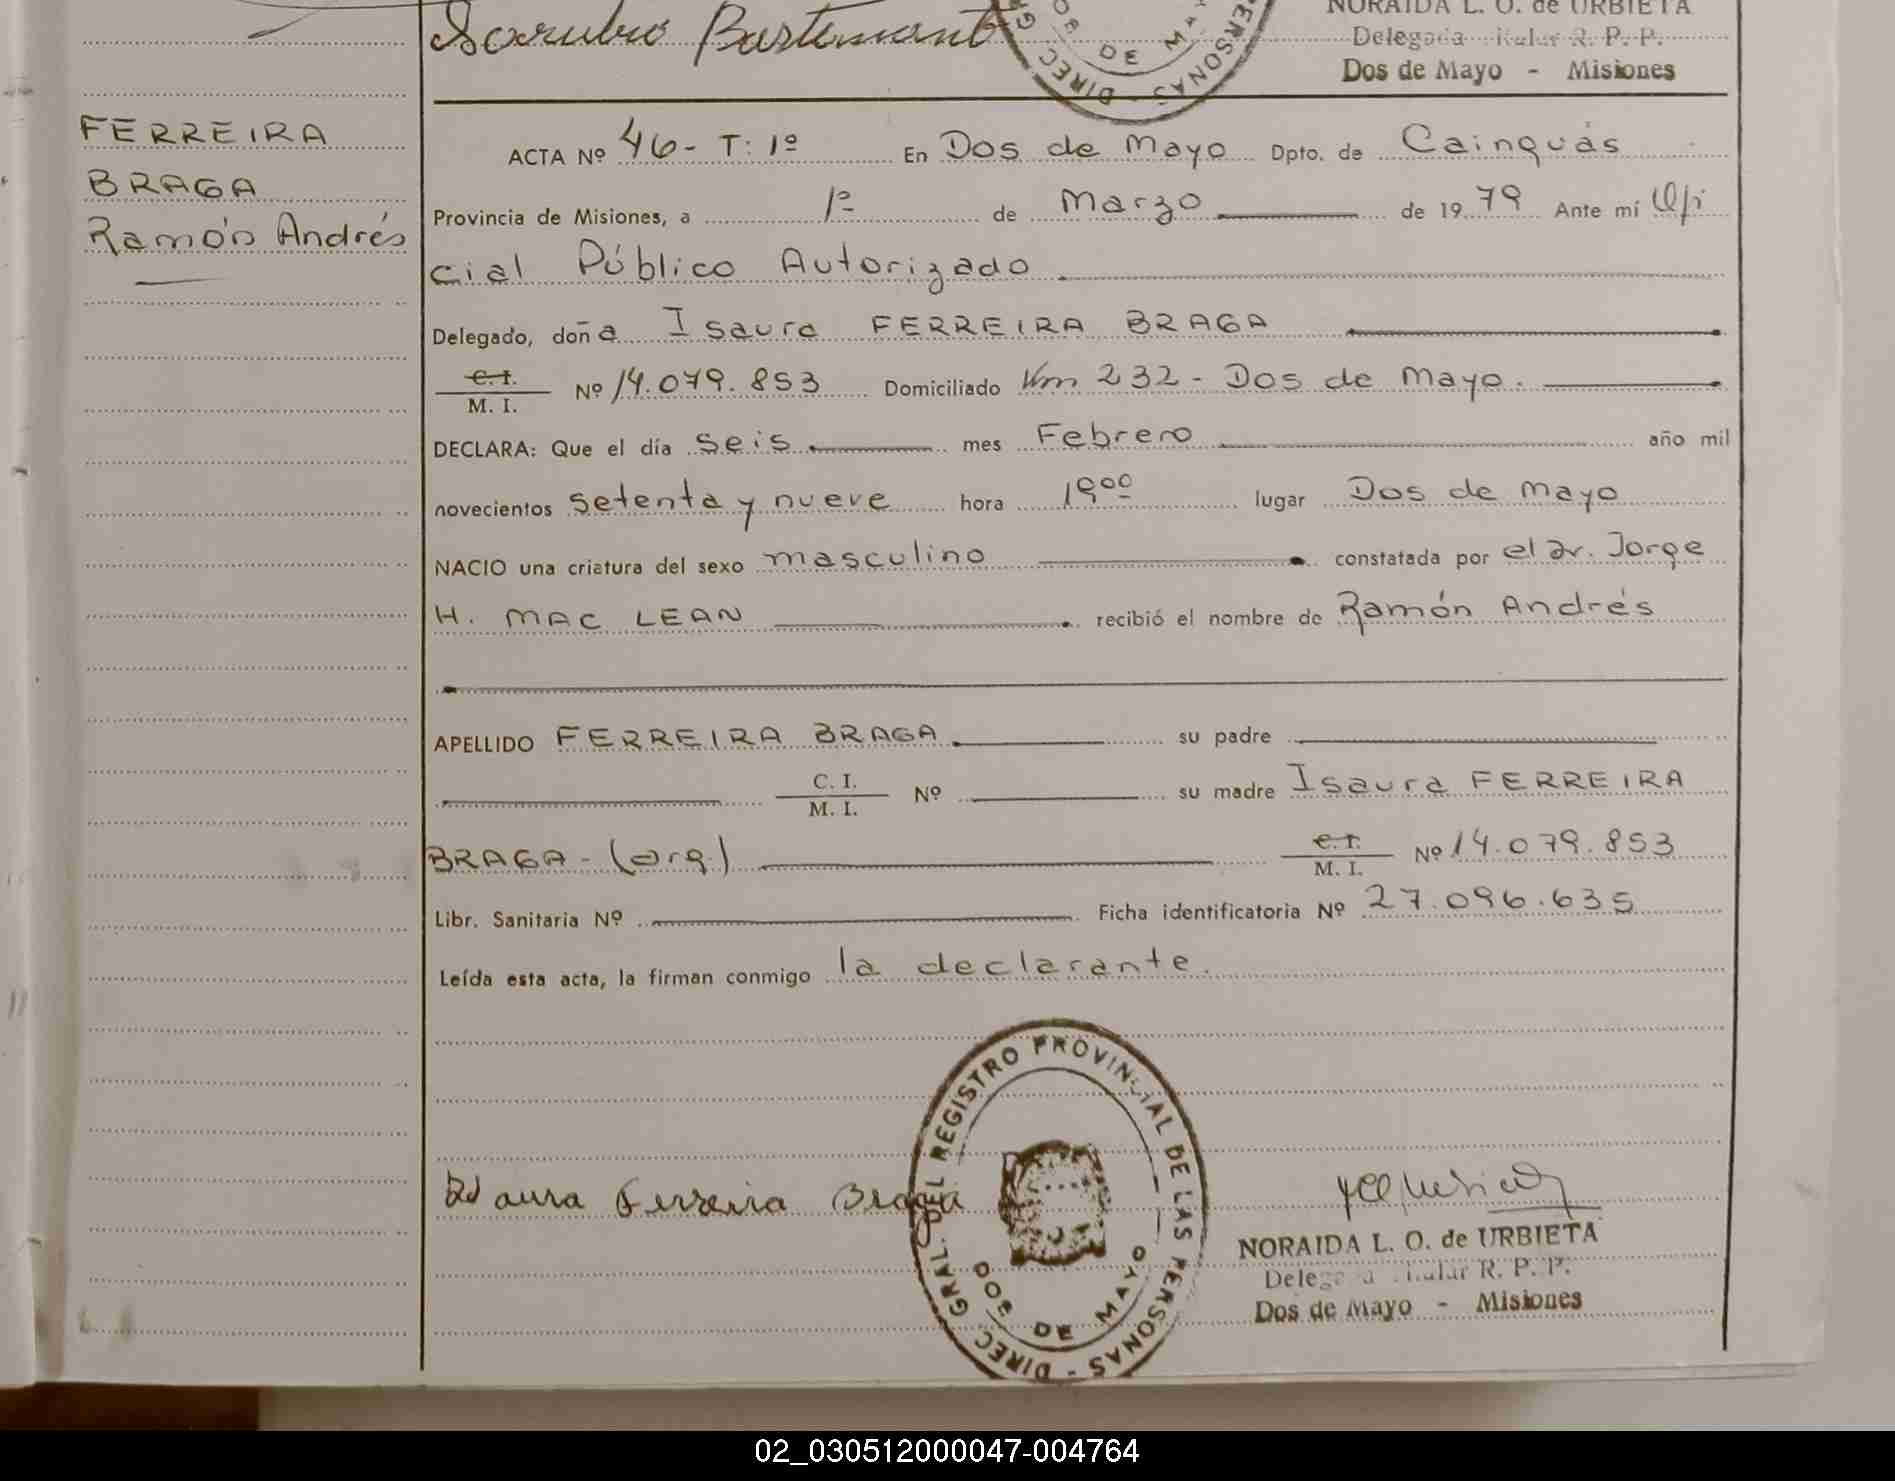 NORAIDA L. O. de URBIETA
Delegada Titular R. P. P.
Dos de Mayo - Misiones
DIREC GRAL. PERSONAS
DOS DE MAYO
FERREIRA
BRAGA
Ramón Andrés
ACTA Nº 46- T: 1º En Dos de Mayo Dpto. de Cainguás
Provincia de Misiones, a 1º de Marzo de 1979 Ante mí Ofi
cial Público Autorizado
Delegado, doña Isaura FERREIRA BRAGA
C. I.
M. I. Nº 14.079.853 Domiciliado Km 232- Dos de Mayo.
DECLARA: Que el día seis mes Febrero año mil
novecientos setenta y nueve hora 19⁰⁰ lugar Dos de Mayo
NACIO una criatura del sexo masculino constatada por el Dr. Jorge
H. MAC LEAN recibió el nombre de Ramón Andrés
APELLIDO FERREIRA BRAGA su padre
C. I.
M. I. Nº su madre Isaura FERREIRA
BRAGA- (arg.) C. I.
M. I. Nº 14.079.853
Libr. Sanitaria Nº Ficha identificatoria Nº 27.096.635
Leída esta acta, la firman conmigo la declarante.
Isaura Ferreira Braga
DIREC GRAL. DEL REGISTRO PROVINCIAL DE LAS PERSONAS -
DOS DE MAYO
NORAIDA L. O. de URBIETA
Delegada Titular R. P. P.
Dos de Mayo - Misiones
02_030512000047-004764